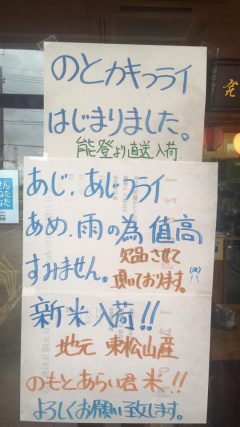 のとカキフライ
はじまりました。
能登より直送入荷.
あじ.あじフライ
あめ.雨の為値高
すみません。欠品させて
頂いております。
新米入荷!!
地元 東松山産
のもとあらい君米!!
よろしくお願い致します。